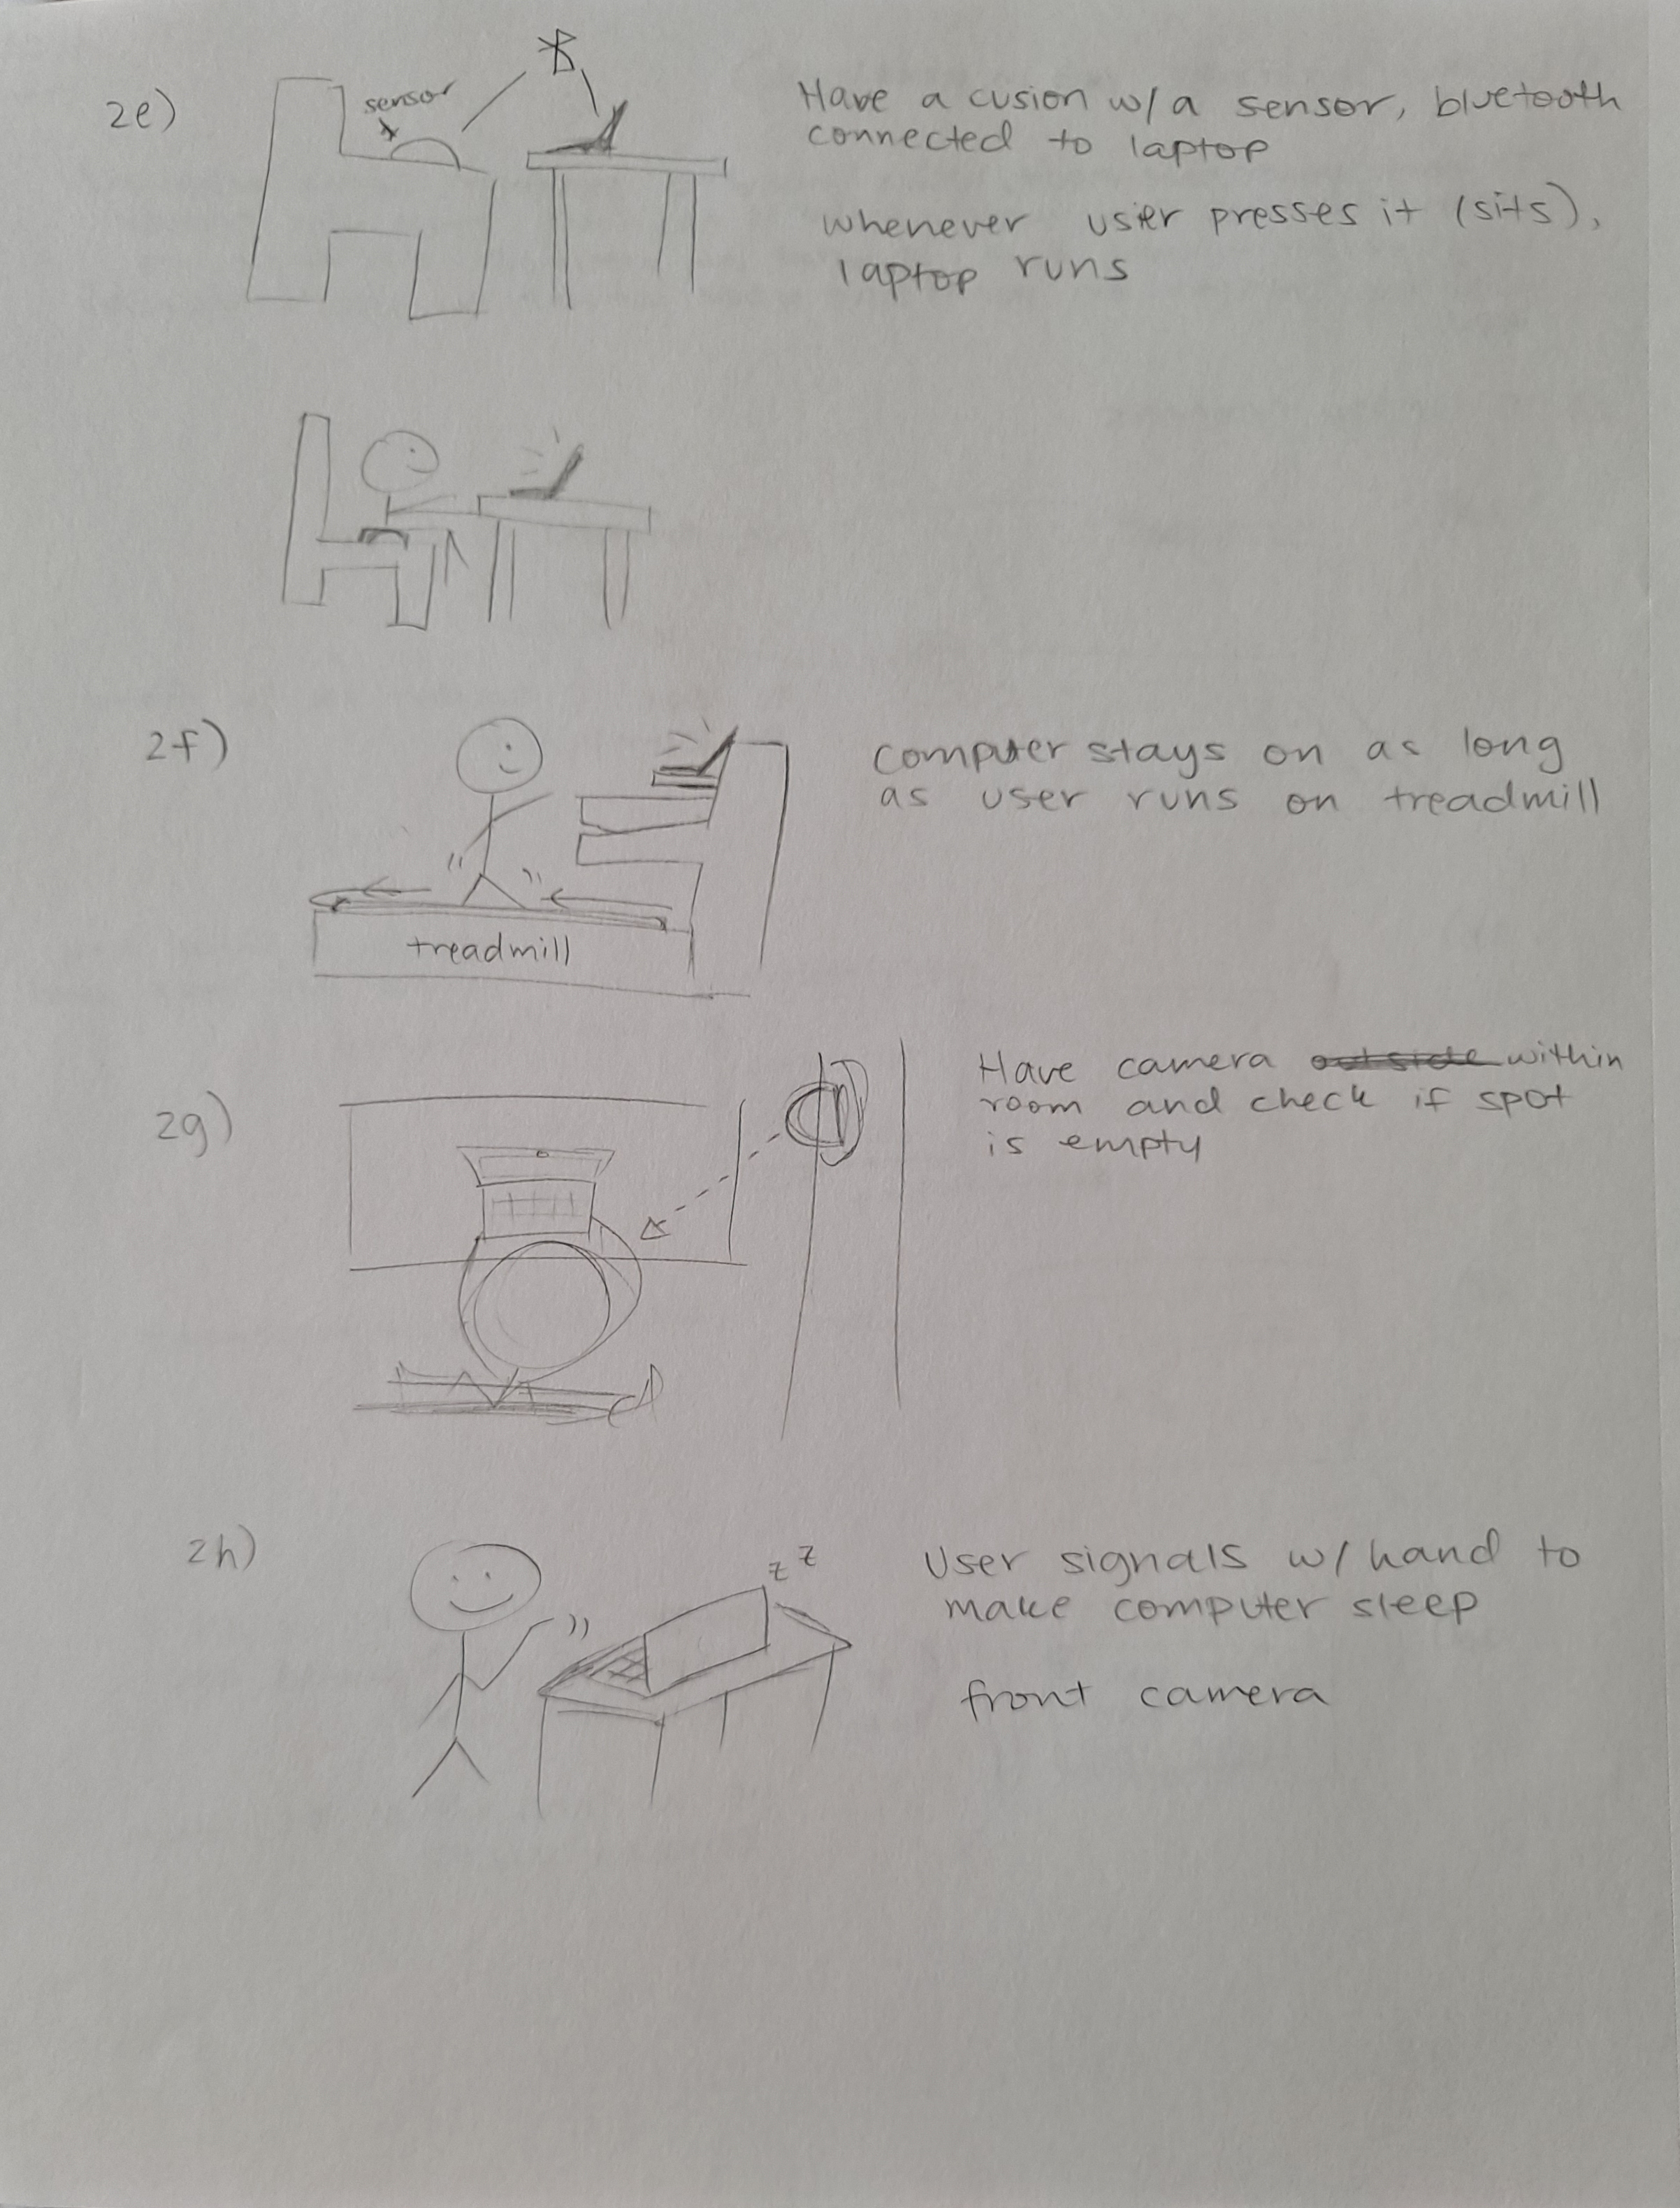 2e)
sensor
Have a cusion w/ a sensor, bluetooth
connected to laptop
whenever user presses it (sits),
laptop runs
2f)
computer stays on as long
as user runs on treadmill
treadmill
2g)
Have camera outside within
room and check if spot
is empty
2h)
z z
User signals w/ hand to
make computer sleep
front camera